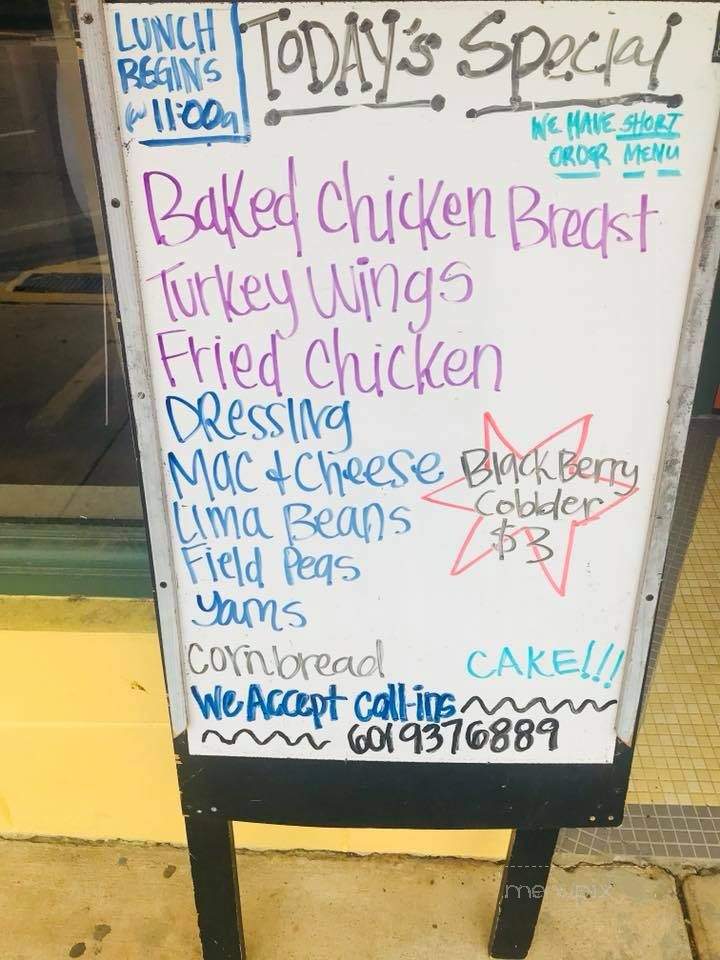 LUNCH
BEGINS
@ 11:00a
TODAY's Special
WE HAVE SHORT
ORDER MENU
Baked Chicken Breast
Turkey Wings
Fried Chicken
DRessing
Mac & Cheese
Lima Beans
Field Peas
Yams
BlackBerry
Cobbler
$3
Cornbread
CAKE!!!
We Accept Call-ins
601 9376889
menupix